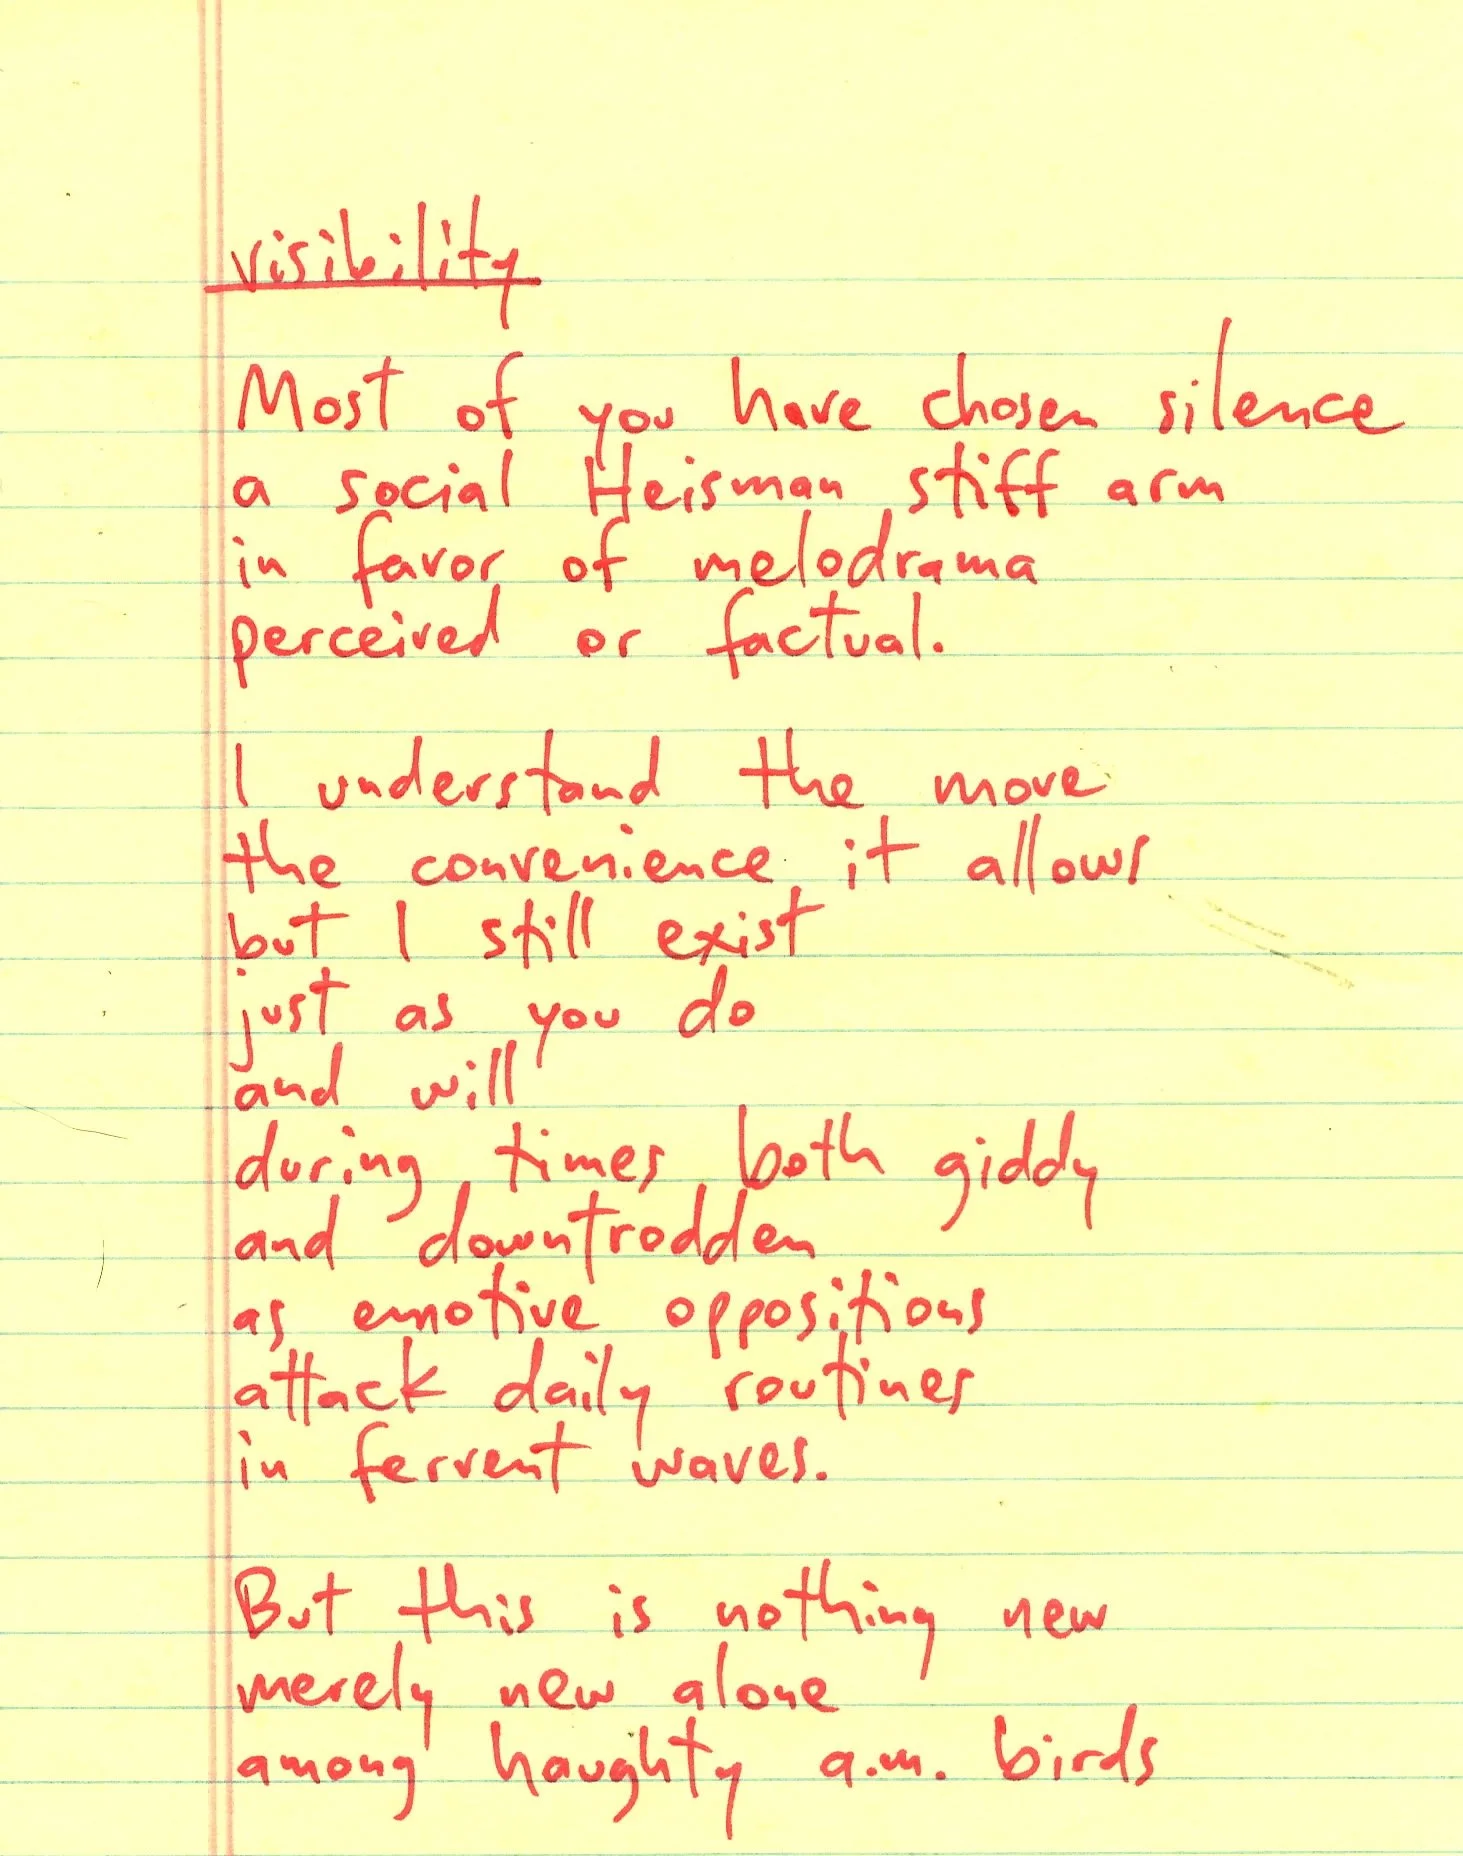 visibility
Most of you have chosen silence
a social Heisman stiff arm
in favor of melodrama
perceived or factual.
I understand the move
the convenience it allows
but I still exist
just as you do
and will
during times both giddy
and downtrodden
as emotive oppositions
attack daily routines
in fervent waves.
But this is nothing new
merely new alone
among haughty a.m. birds